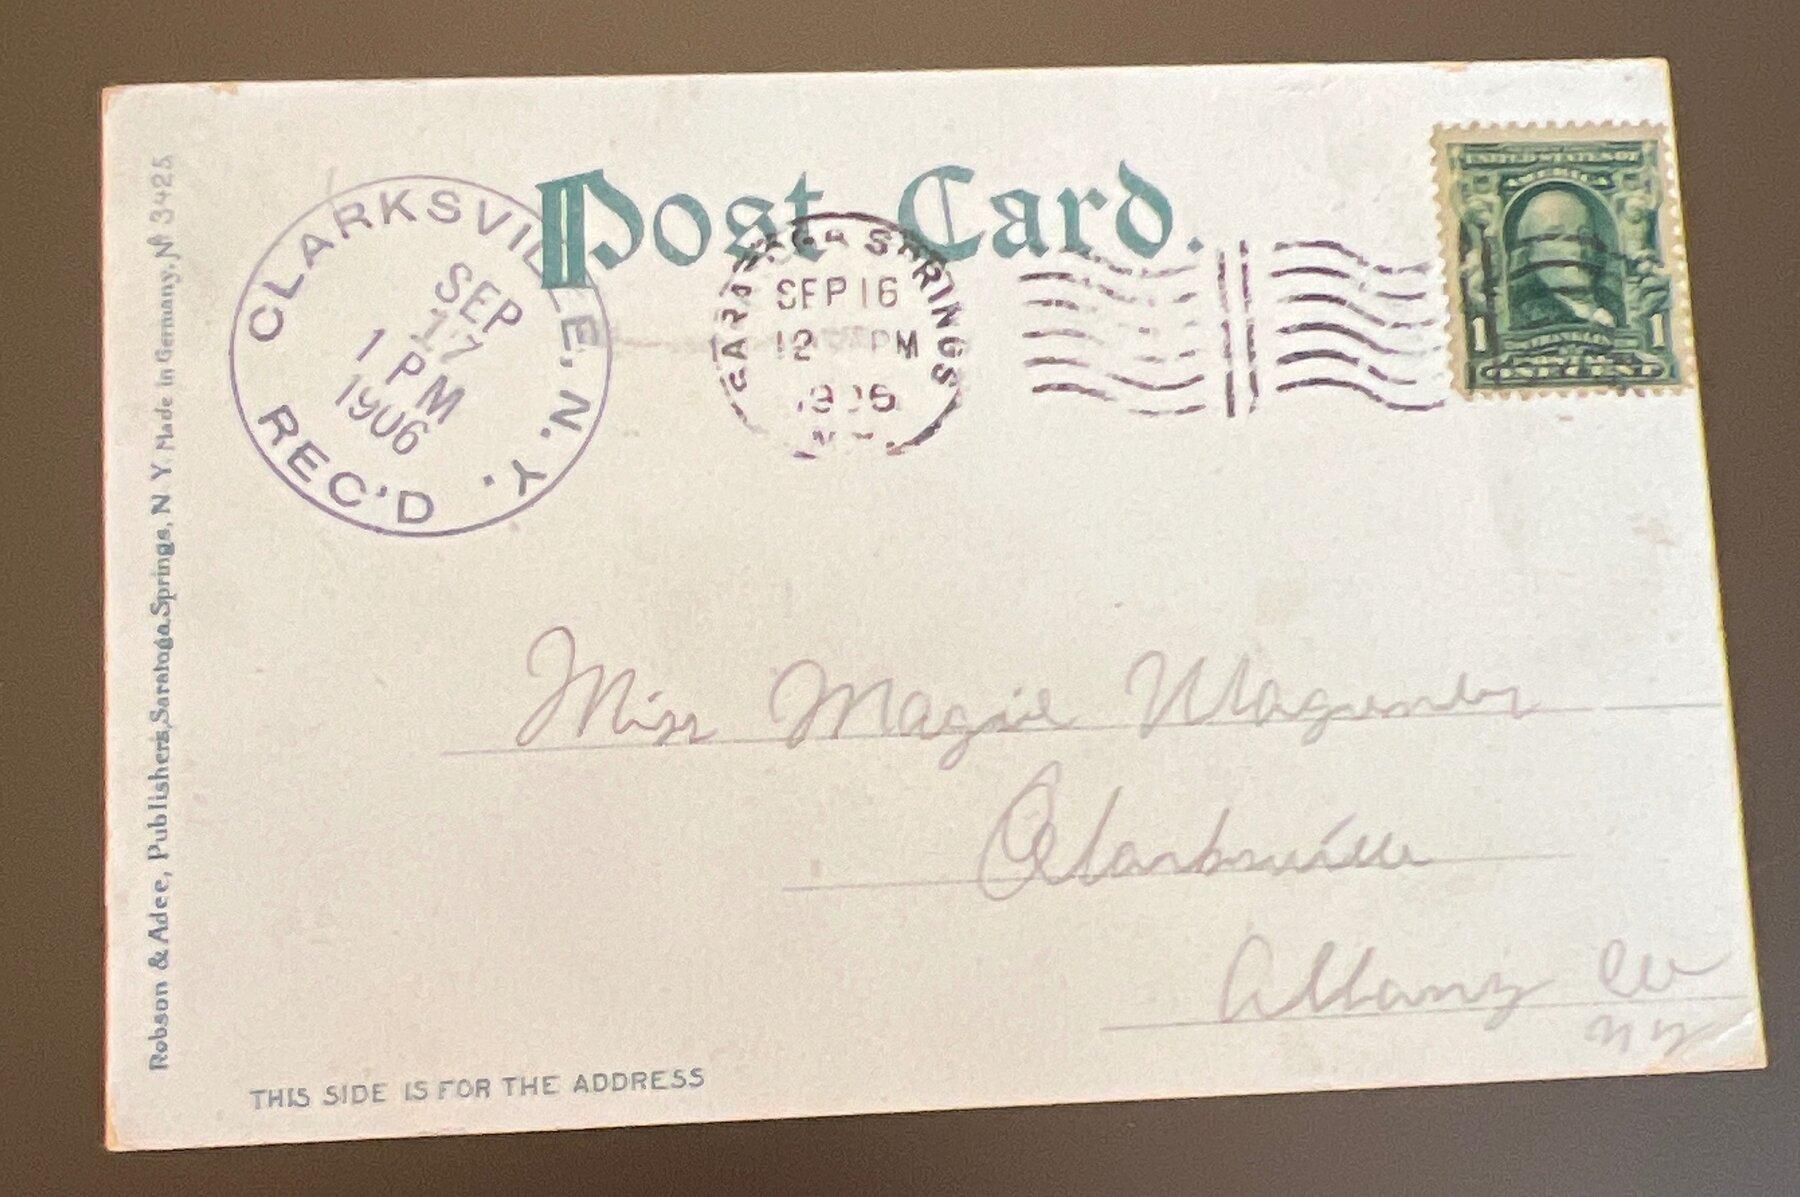 Post Card.
CLARKSVILLE, N. Y.
SEP
17
1 PM
1906
REC'D
SARATOGA SPRINGS
SEP 16
12 PM
1906
UNITED STATES OF
AMERICA
1 1
ONE CENT
Robson & Adee, Publishers, Saratoga Springs, N Y. Made in Germany. No 3425
Miss Magie
Clarksville
Albany Co
N Y
THIS SIDE IS FOR THE ADDRESS